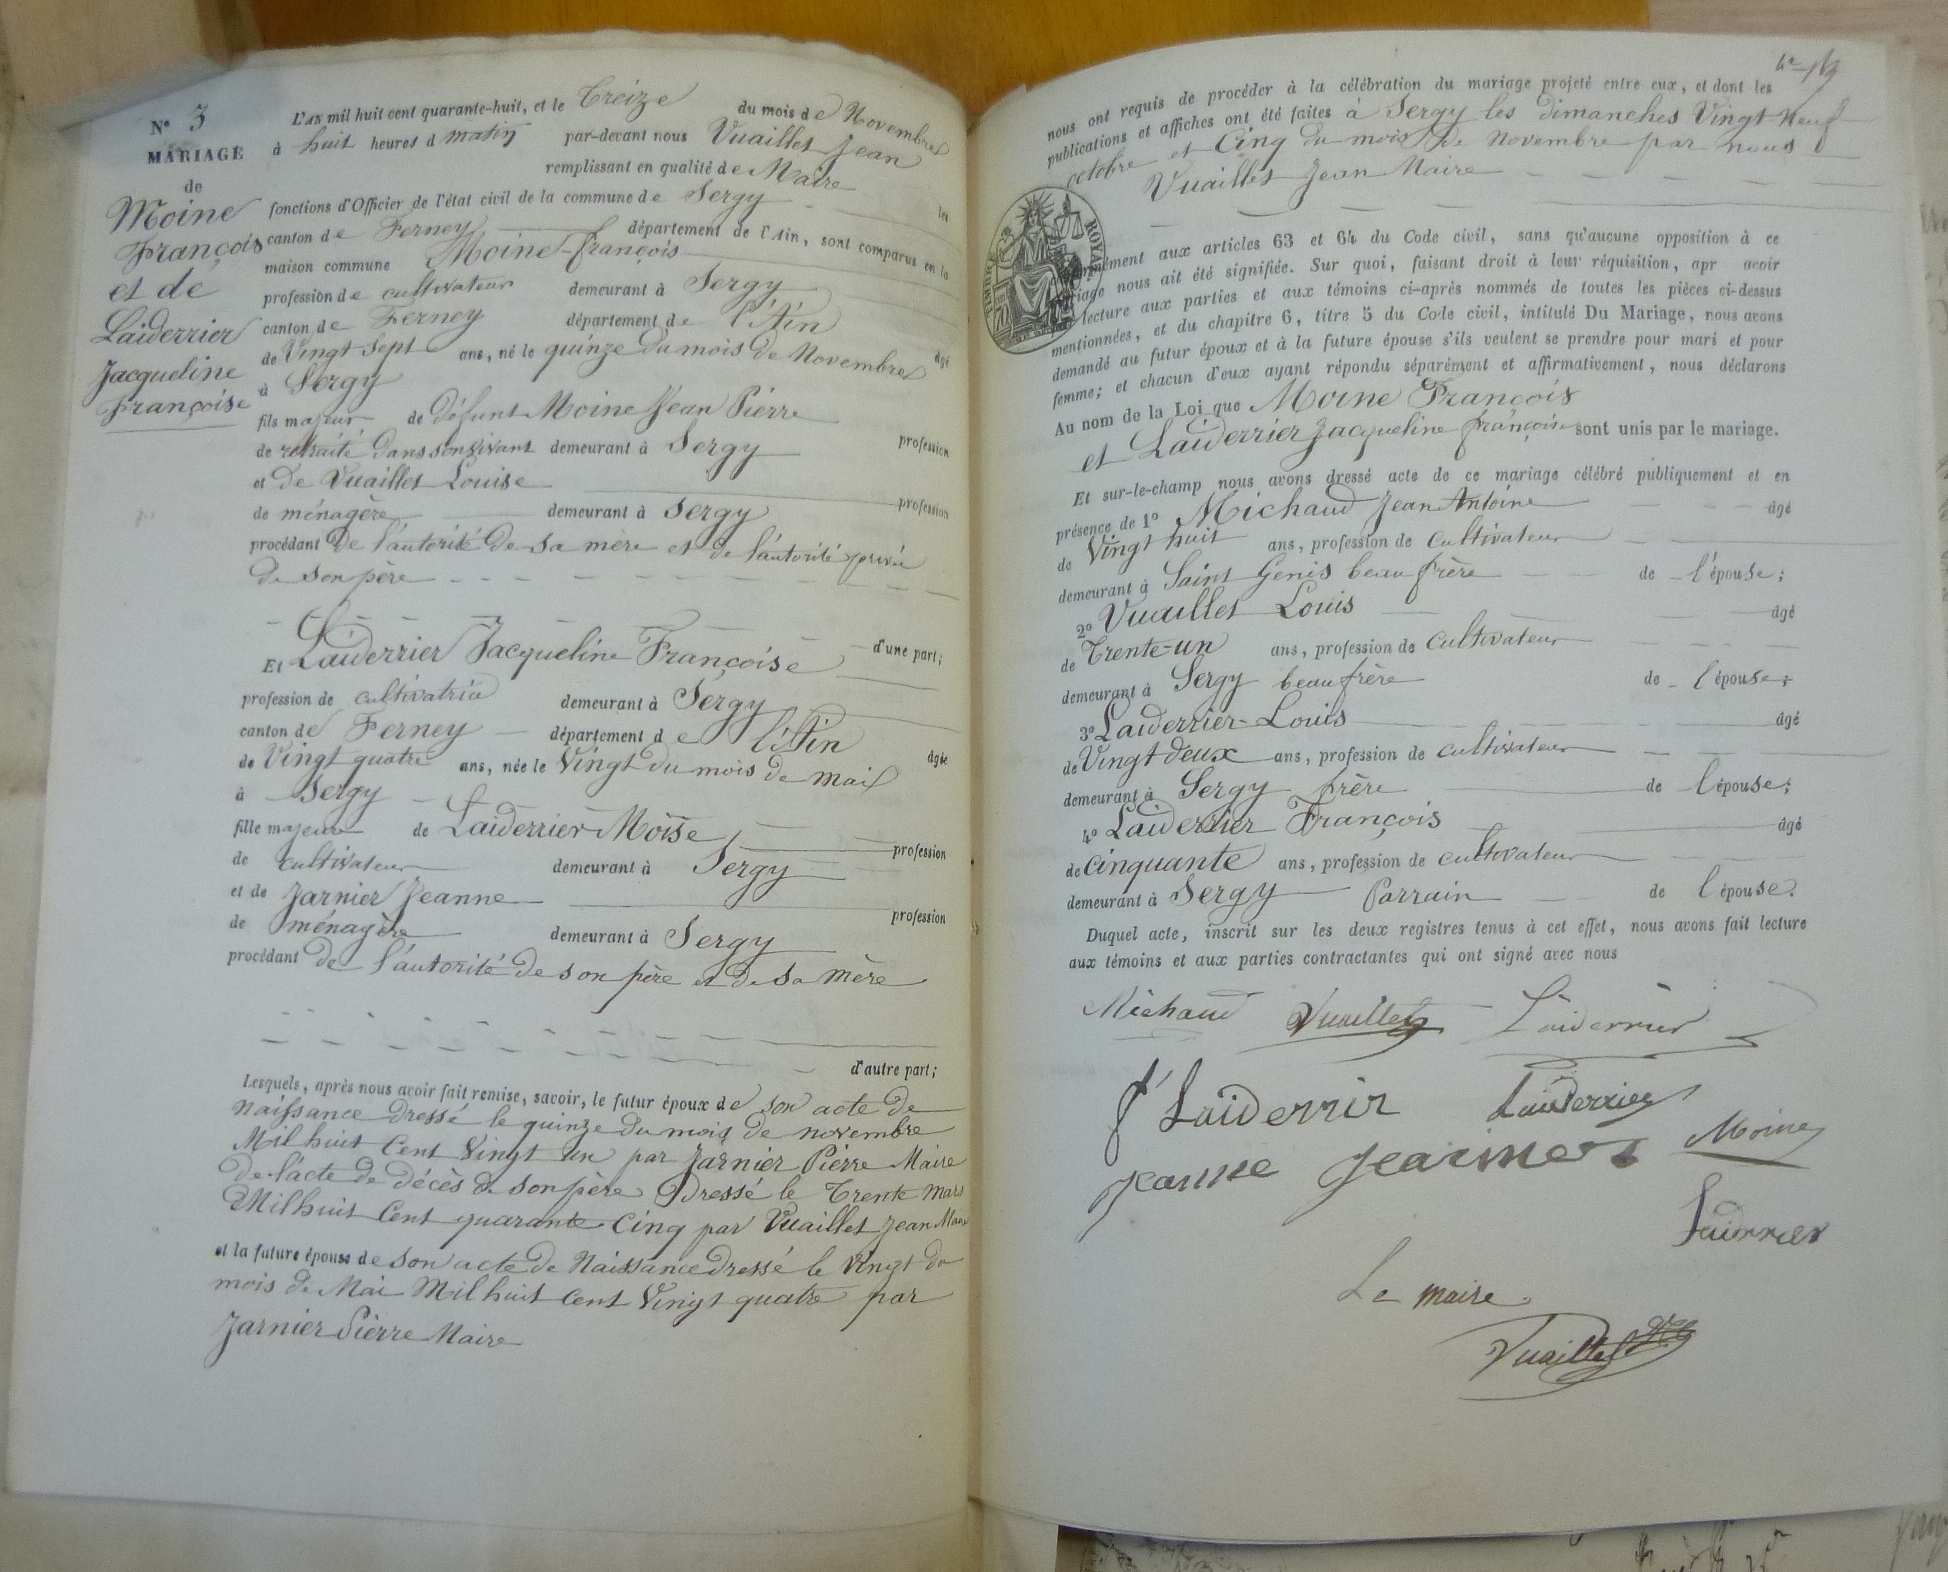 N° 3
MARIAGE
de
Moine
François
et de
Laiderrier
Jacqueline
Françoise
L'AN mil huit cent quarante-huit, et le Treize du mois de Novembre
à huit heures d matin par-devant nous Vuaillet Jean
remplissant en qualité de Maire les
fonctions d'Officier de l'état civil de la commune de Sergy
canton de Ferney département de l'Ain, sont comparus en la
maison commune Moine françois
profession de cultivateur demeurant à Sergy
canton de Ferney département de l'Ain âgé
de Vingt Sept ans, né le quinze du mois de Novembre
à Sergy
fils majeur de défunt Moine Jean Pierre profession
de retraité dans son vivant demeurant à Sergy
et de Vuaillet Louise profession
de ménagère demeurant à Sergy
procédant De l'autorité de sa mère et de l'autorité privé
de son père
d'une part;
Et Laiderrier Jacqueline Françoise
profession de cultivatrice demeurant à Sergy
canton de Ferney département de l'Ain âgée
de Vingt quatre ans, née le Vingt du mois de mai
à Sergy
fille majeure de Laiderrier Moïse profession
de cultivateur demeurant à Sergy
et de Jarnier Jeanne profession
de ménagère demeurant à Sergy
procédant de l'autorité de son père et de sa mère
d'autre part;
Lesquels, après nous avoir fait remise, savoir, le futur époux de son acte de
naissance dressé le quinze du mois de novembre
Mil huit Cent Vingt un par Jarnier Pierre Maire
De l'acte de décès de son père Dressé le Trente Mars
Mil huit Cent quarante Cinq par Vuaillet Jean Maire
et la future épouse de son acte de Naissance dressé le Vingt du
mois de Mai Mil huit Cent Vingt quatre par
Jarnier Pierre Maire
nous ont requis de procéder à la célébration du mariage projeté entre eux, et dont les
publications et affiches ont été faites à Sergy les dimanches Vingt Neuf
octobre et Cinq du mois de Novembre par nous
Vuaillet Jean Maire
TIMBRE ROYAL
70
conformément aux articles 63 et 64 du Code civil, sans qu'aucune opposition à ce
mariage nous ait été signifiée. Sur quoi, faisant droit à leur réquisition, apr avoir
lecture aux parties et aux témoins ci-après nommés de toutes les pièces ci-dessus
mentionnées, et du chapitre 6, titre 5 du Code civil, intitulé Du Mariage, nous avons
demandé au futur époux et à la future épouse s'ils veulent se prendre pour mari et pour
femme; et chacun d'eux ayant répondu séparément et affirmativement, nous déclarons
Au nom de la Loi que Moine François
et Laiderrier Jacqueline françoise sont unis par le mariage.
Et sur-le-champ nous avons dressé acte de ce mariage célébré publiquement et en
présence de 1° Michaud Jean Antoine âgé
de Vingt huit ans, profession de cultivateur
demeurant à Saint Genis beau frère de l'épouse;
2° Vuaillet Louis âgé
de Trente-un ans, profession de Cultivateur
demeurant à Sergy beau frère de l'épouse;
3° Laiderrier Louis âgé
de Vingt deux ans, profession de cultivateur
demeurant à Sergy frère de l'épouse;
4° Laiderrier François âgé
de cinquante ans, profession de cultivateur
demeurant à Sergy Parrain de l'épouse.
Duquel acte, inscrit sur les deux registres tenus à cet effet, nous avons fait lecture
aux témoins et aux parties contractantes qui ont signé avec nous
Michaud Vuaillet Laiderrier
f Laiderrir Laiderrier
Jeanne Jearnier Moine
Laiderrier
Le maire
Vuaillet